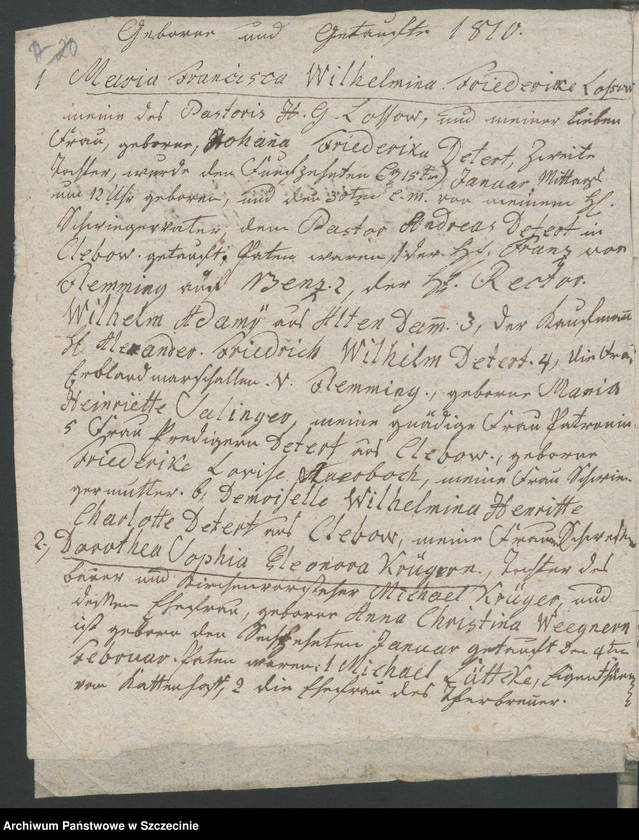 Geborne und Getaufte 1810.
1 Maria Francisca Wilhelmina Friederike Lossow
meine des Pastoris H. G. Lossow, und meiner lieben
Frau, geborne, Johanna Friederika Detert, Zweite
Tochter, wurde den Funfzehnten (15ten) Januar Mittags
um 12 Uhr geboren, und den 30ten e. m. von meinem H.
Schwiegervater, dem Pastor Andreas Detert in
Clebow getauft. Paten waren 1 der H. Franz von
Flemming aus Benz. 2, der H. Rector.
Wilhelm Adamÿ aus Alten Dam̄. 3, der Kaufmann
H. Alexander. Friedrich Wilhelm Detert. 4, die Frau
Erblandmarschallen v. Flemming, geborne Maria
Heinriette Salinger, meine gnädige Frau Patronin
5 Frau Predigern Detert aus Clebow, geborne
Friederike Lovise Auerboch, meine Frau Schwie-
germutter. 6, Demoiselle Wilhelmina Henritte
Charlotte Detert aus Clebow, meine Frau Schwester
2, Dorothea Sophia Eleonora Krügern, Tochter des
bauer und Kirchenvorsteher Michael Krüger, und
dessen Ehefrau, geborne Anna Christina Weegnern
ist geborn den Sechzehnten Januar getauft den 4ten
Februar. Paten waren: 1 Michael Lüttke, Eigenthümer
von Kattenhoff, 2 die Ehefrau des
Archiwum Państwowe w Szczecinie